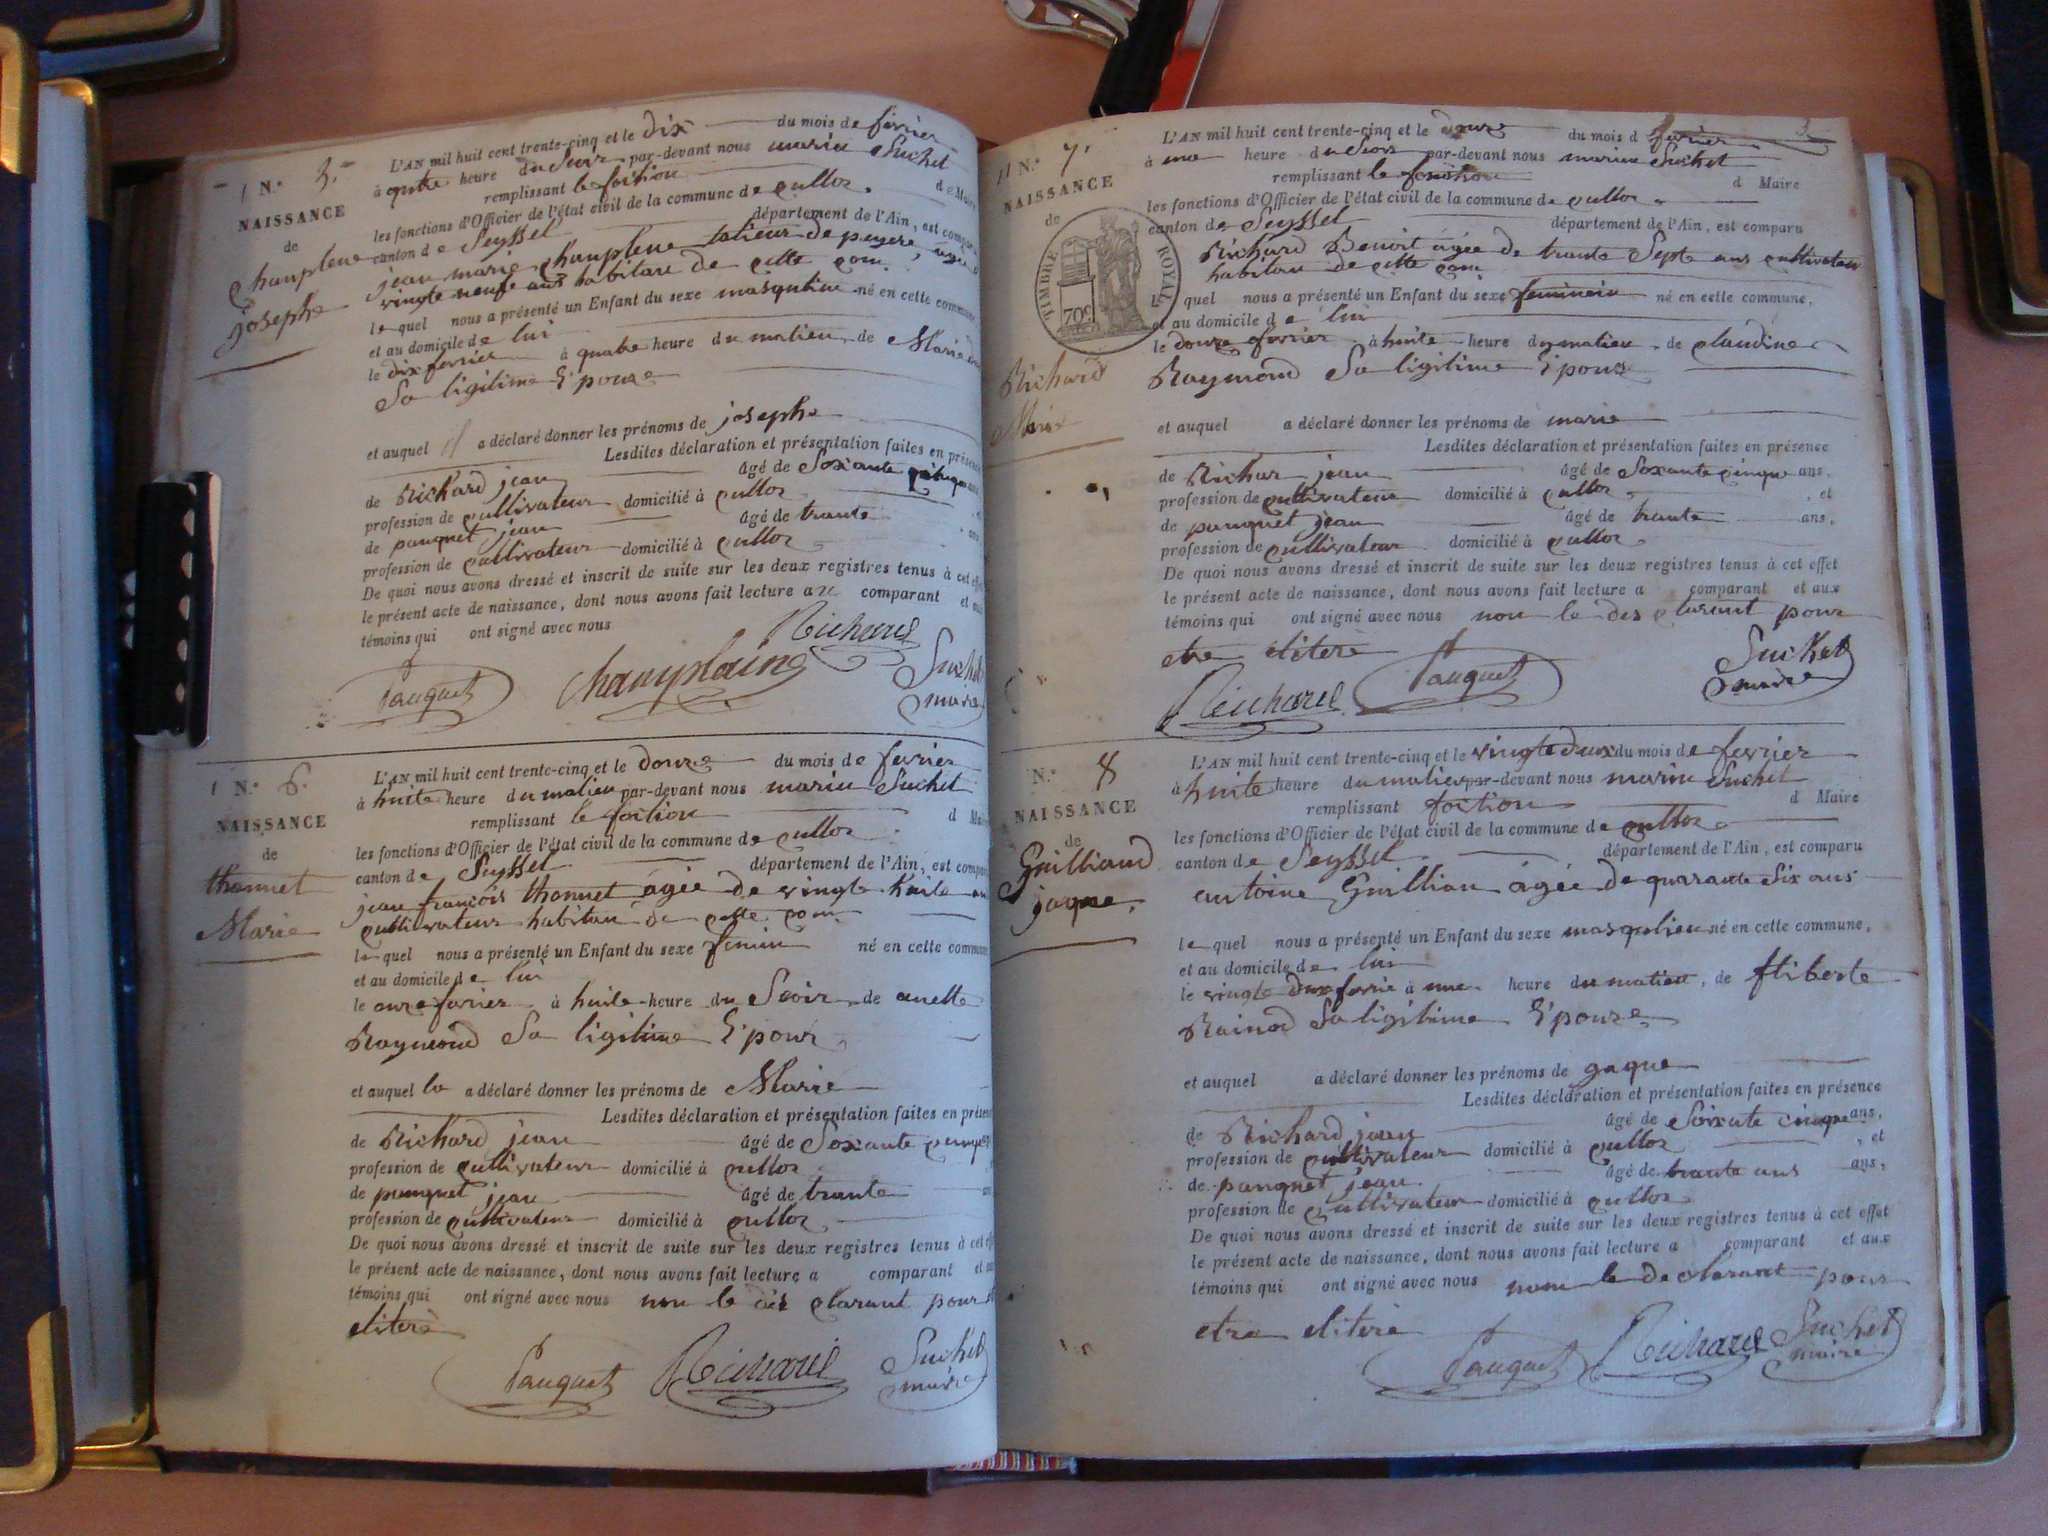 N.º 5.
NAISSANCE
de
Chanplene
josephe
L'AN mil huit cent trente-cinq et le dix du mois de fevrier
à qutre heure du Soir par-devant nous marin Suchet
remplissant le foition d e Maire
les fonctions d'Officier de l'état civil de la commune de Culloz
canton de Seyssel département de l'Ain, est compa
jean marie Chanplene talieur de peyere, agée
vingte neufe ans habitan de cette com
le quel nous a présenté un Enfant du sexe masqulin né en cette commune
et au domicile de lui
le dix fevrier à quatre heure du matieu, de Marie
Sa ligitime Epouze
et auquel il a déclaré donner les prénoms de josephe
Lesdites déclaration et présentation faites en présence
de Richard jean âgé de Soxante cinque
profession de cultivateur domicilié à Culloz
de pauquet jean âgé de trante ans
profession de cultivateur domicilié à Culloz
De quoi nous avons dressé et inscrit de suite sur les deux registres tenus à cet effet
le présent acte de naissance, dont nous avons fait lecture au comparant et aux
témoins qui ont signé avec nous
Richard
Pauquet Chanplaing Suchet
maire
N.º 6.
NAISSANCE
de
thonnet
Marie
L'AN mil huit cent trente-cinq et le douze du mois de fevrier
à huite heure du matieu par-devant nous marin Suchet
remplissant le foition d Maire
les fonctions d'Officier de l'état civil de la commune de Culloz
canton de Seyssel département de l'Ain, est compa
jean françois thonnet agée de vingte huite an
cultivateur habitan de cette com
le quel nous a présenté un Enfant du sexe femin né en cette commune
et au domicile de lui
le onze fevrier à huite heure du Soir de anette
Raymond Sa ligitime Epouz
et auquel la a déclaré donner les prénoms de Marie
Lesdites déclaration et présentation faites en présence
de Richard jean âgé de Soxante cinque
profession de cultivateur domicilié à Culloz
de pauquet jean âgé de trante
profession de cultivateur domicilié à Culloz
De quoi nous avons dressé et inscrit de suite sur les deux registres tenus à cet effet
le présent acte de naissance, dont nous avons fait lecture a comparant et aux
témoins qui ont signé avec nous non le des clarant pour
elitere
Pauquet Richard Suchet
maire
3
N.º 7.
NAISSANCE
de
TIMBRE ROYAL
70c
Richard
Marie
L'AN mil huit cent trente-cinq et le douze du mois d fevrier
à une heure du Soir par-devant nous marin Suchet
remplissant le fonction d Maire
les fonctions d'Officier de l'état civil de la commune de Culloz
canton de Seyssel département de l'Ain, est comparu
Richard Benoit agée de trante Septe ans cultivateur
habitan de cette com
quel nous a présenté un Enfant du sexe feminein né en cette commune,
et au domicile de lui
le douze fevrier à huite heure du matieu de claudine
Raymond Sa ligitime Epouz
et auquel a déclaré donner les prénoms de marie
Lesdites déclaration et présentation faites en présence
de Richar jean âgé de Soxante cinque ans,
profession de cultivateur domicilié à Culloz , et
de pauquet jean âgé de trante ans,
profession de cultivateur domicilié à Culloz
De quoi nous avons dressé et inscrit de suite sur les deux registres tenus à cet effet
le présent acte de naissance, dont nous avons fait lecture a comparant et aux
témoins qui ont signé avec nous non le des clarant pour
etre elitere
Richard Pauquet Suchet
maire
N.º 8
NAISSANCE
de
Guilliand
jaque,
L'AN mil huit cent trente-cinq et le vingte deux du mois de fevrier
à huite heure du matieu par-devant nous marin Suchet
remplissant foition d Maire
les fonctions d'Officier de l'état civil de la commune de Culloz
canton de Seyssel département de l'Ain, est comparu
antoine Guillian agée de quarante Six ans
le quel nous a présenté un Enfant du sexe masqulieu né en cette commune,
et au domicile de lui
le vingte deux fevrie à une heure du matieu, de fliberte
Rainod Sa ligitime Epouze
et auquel a déclaré donner les prénoms de gaque
Lesdites déclaration et présentation faites en présence
de Richard jean âgé de Soixate cinque ans,
profession de cultivateur domicilié à Culloz , et
de pauquet jean âgé de trante ans ans,
profession de cultivateur domicilié à Culloz
De quoi nous avons dressé et inscrit de suite sur les deux registres tenus à cet effet
le présent acte de naissance, dont nous avons fait lecture a comparant et aux
témoins qui ont signé avec nous nom le declarant pour
etre elitere
Pauquet Richard Suchet
maire